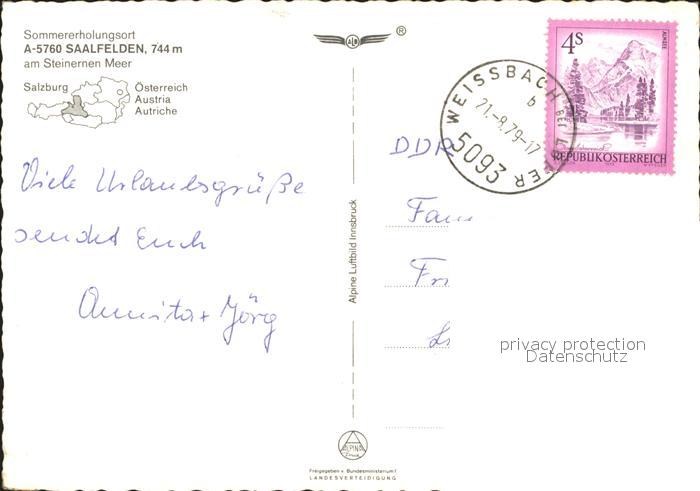 Sommererholungsort
A-5760 SAALFELDEN, 744 m
am Steinernen Meer
Salzburg
Österreich
Austria
Autriche
Viele Urlaubsgrüße
sendet Euch
Annita + Jörg
Alpine Luftbild Innsbruck
ALPINA
Freigegeben v. Bundesministerium f.
LANDESVERTEIDIGUNG
®
WEISSBACH BEI LOFER
b
21.-8.79-17
5093
4S
ALMSEE
REPUBLIK ÖSTERREICH
DDR
Fam
Fri
privacy protection
Datenschutz